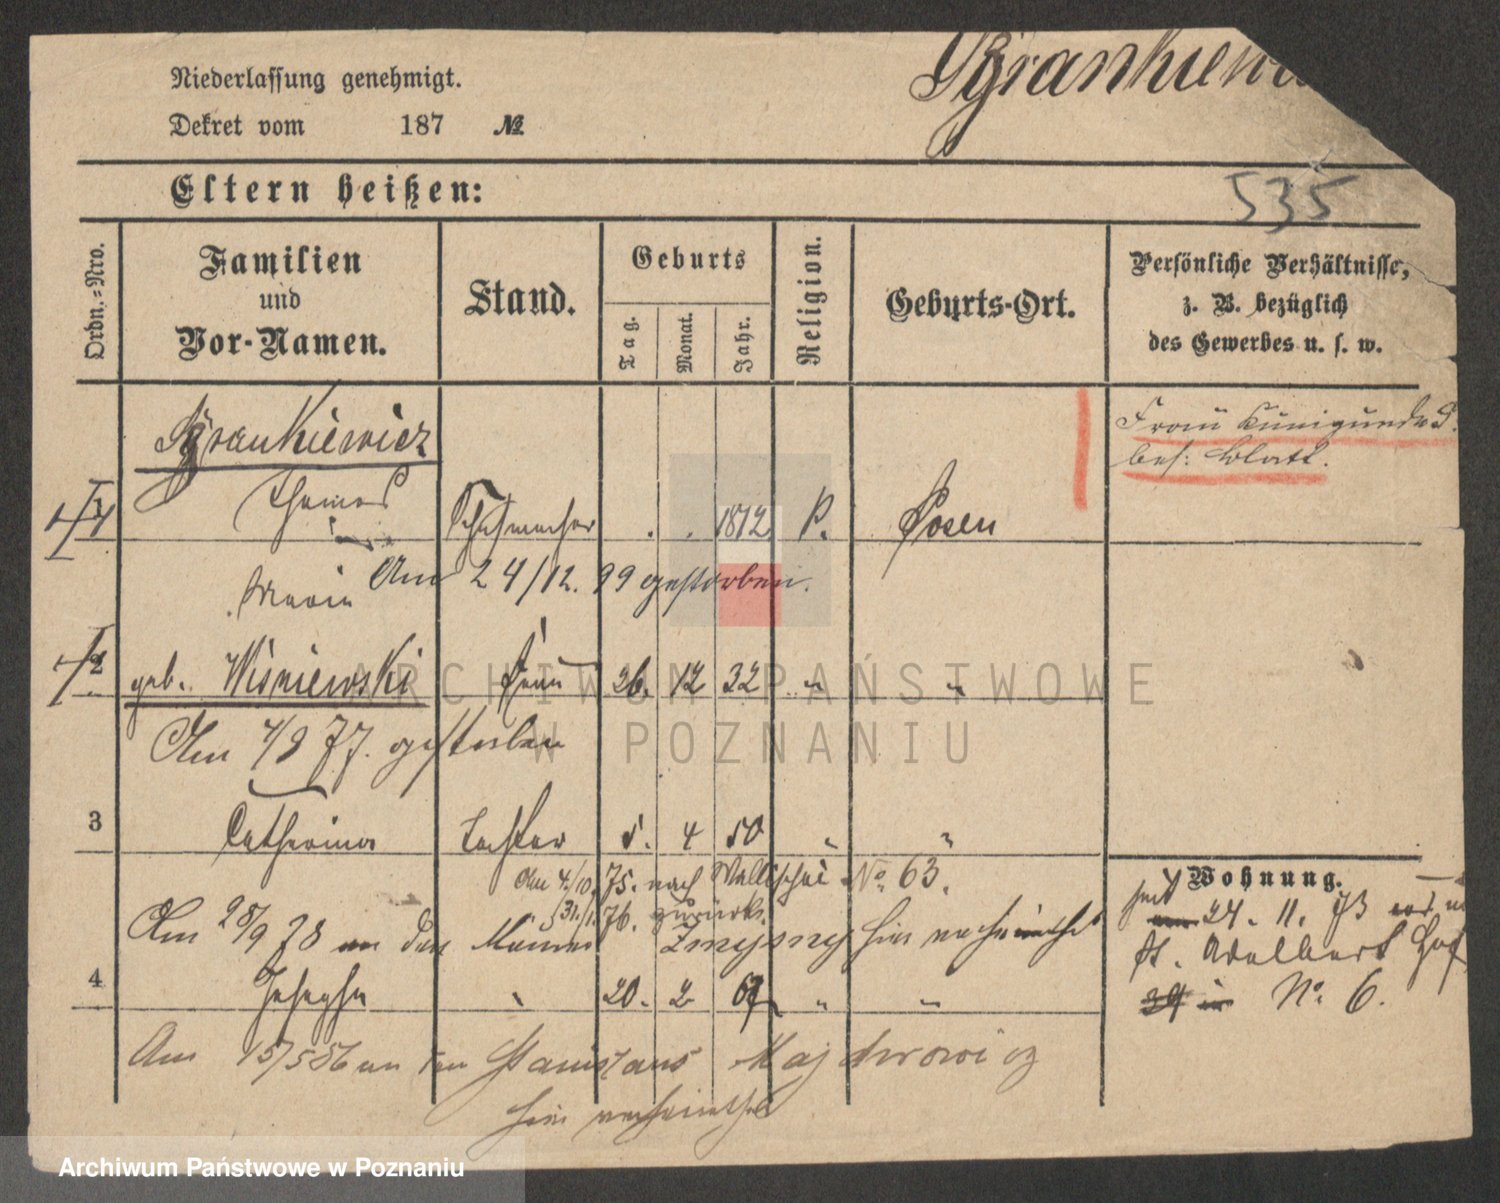 Niederlassung genehmigt.
Dekret vom 187 №
535
Eltern heißen:
Ordn.=Nro.
Familien
und
Vor-Namen.
Stand.
Geburts
Tag.
Monat.
Jahr.
Religion.
Geburts-Ort.
Persönliche Verhältnisse,
z. B. bezüglich
des Gewerbes u. s. w.
Szrankiewicz
Frau Kunigunde S.
bes: Blatt.
1 Thomas Schuhmacher . . 1812 P. Posen
Am 24/12. 99 gestorben.
Maria
2 geb. Wisniewski Frau 26. 12 32 " "
Am 4/9 77. gestorben
3 Catharina Tochter 5. 4 50 " "
Am 4./10. 75. nach Wallischei No. 63.
31./1. 76. zurück.
Wohnung.
seit 24. 11. 73
Am 28/9 78 an den Zmysny hier verheirathet
St. Adalbert
No. 6.
4 Josepha " 20. 2 " "
Am 15/5 86 an den Stanislaus Majchrowicz
hier verheirathet
ARCHIWUM PAŃSTWOWE
W POZNANIU
Archiwum Państwowe w Poznaniu